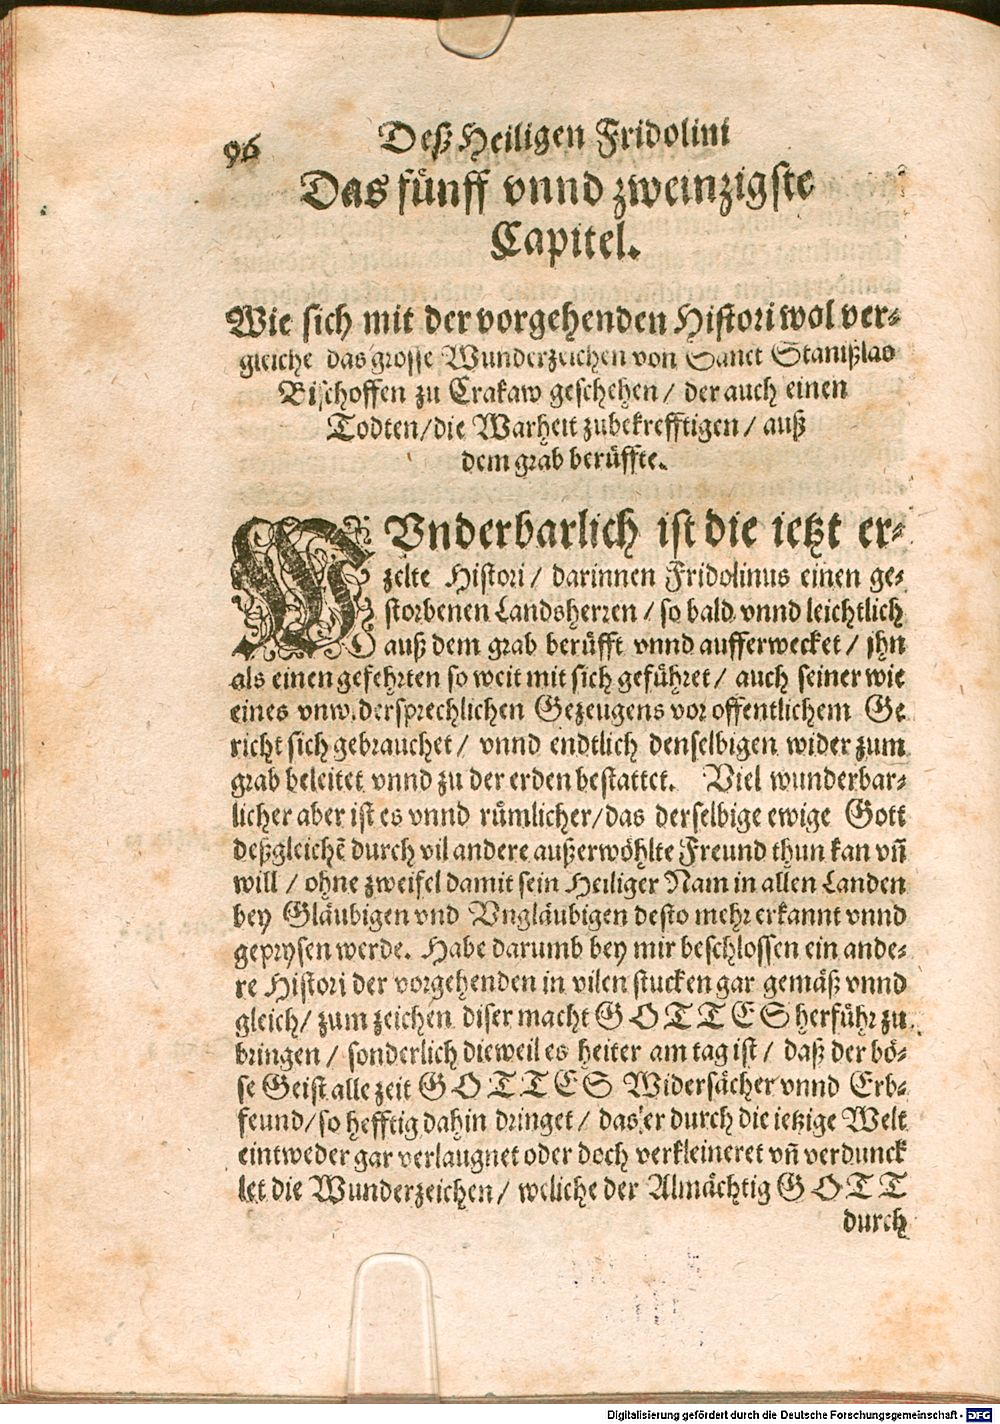 96
Deß Heiligen Fridolini
Das fünff vnnd zweinzigste
Capitel.
Wie sich mit der vorgehenden Histori wol ver-
gleiche das grosse Wunderzeichen von Sanct Stanißlao
Bischoffen zu Crakaw geschehen / der auch einen
Todten/die Warheit zubekrefftigen / auß
dem grab berüffte.
WVnderbarlich ist die ietzt er-
zelte Histori / darinnen Fridolinus einen ge-
storbenen Landsherren / so bald vnnd leichtlich
auß dem grab berüfft vnnd aufferwecket / jhn
als einen gefehrten so weit mit sich geführet / auch seiner wie
eines vnwidersprechlichen Gezeugens vor offentlichem Ge
richt sich gebrauchet / vnnd endtlich denselbigen wider zum
grab beleitet vnnd zu der erden bestattet. Viel wunderbar-
licher aber ist es vnnd rümlicher/das derselbige ewige Gott
deßgleichẽ durch vil andere außerwöhlte Freund thun kan vñ
will / ohne zweifel damit sein Heiliger Nam in allen Landen
bey Gläubigen vnd Vngläubigen desto mehr erkannt vnnd
geprysen werde. Habe darumb bey mir beschlossen ein ande-
re Histori der vorgehenden in vilen stucken gar gemäß vnnd
gleich/ zum zeichen diser macht GOTTES herführ zu
bringen / sonderlich dieweil es heiter am tag ist / daß der bö-
se Geist alle zeit GOTTES Widersächer vnnd Erb-
feund/so hefftig dahin dringet / das er durch die ietzige Welt
eintweder gar verlaugnet oder doch verkleineret vñ verdunck
let die Wunderzeichen / weliche der Almächtig GOTT
durch
Digitalisierung gefördert durch die Deutsche Forschungsgemeinschaft - DFG